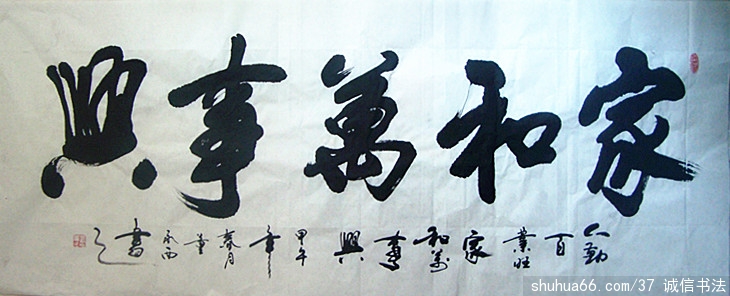 家和萬事興
人勤百業旺家和萬事興甲午年春月
書
shuhua66.com/37 诚信书法